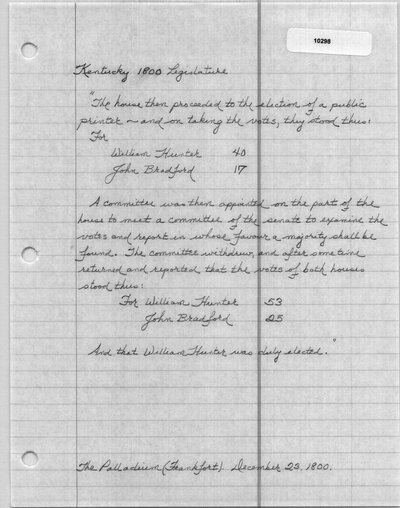 10298
Kentucky 1800 Legislature
"The house then proceeded to the election of a public
printer – and on taking the votes, they stood thus:
For
William Hunter 40
John Bradford 17
A committee was then appointed on the part of the
house to meet a committee of the senate to examine the
votes and report in whose favour a majority shall be
found. The committee withdrew, and after some time
returned and reported that the votes of both houses
stood thus:
For William Hunter 53
John Bradford 25
And that William Hunter was duly elected."
The Palladium (Frankfort). December 23, 1800.